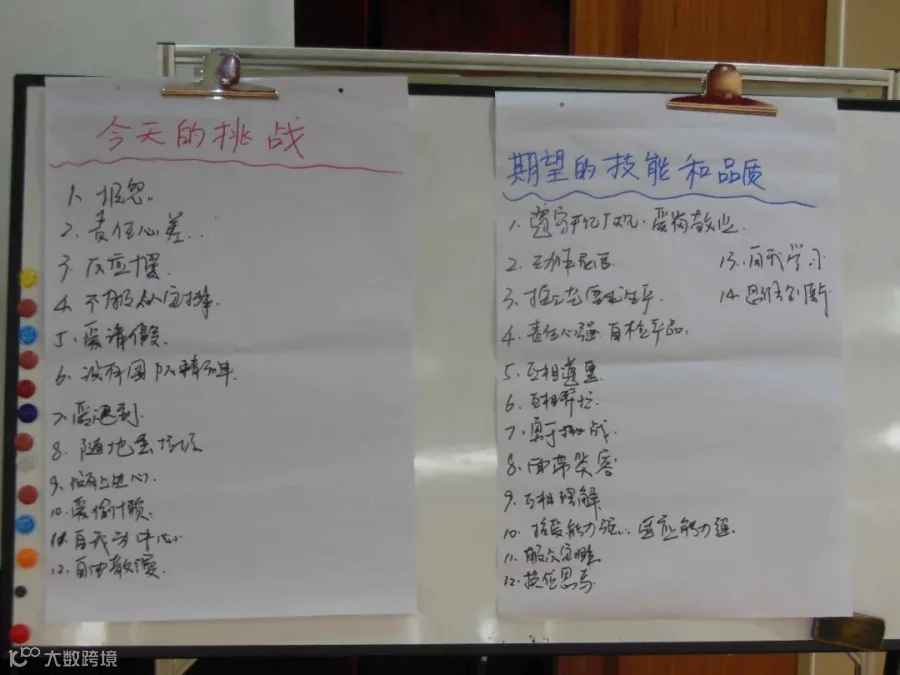 今天的挑战
1.
2. 责任心差.
3. 反应慢
4. 不服从安排
5. 爱请假
6. 没有团队精神
7. 爱迟到
8. 随地丢垃圾
9. 没有上进心.
10. 爱偷懒
11. 自我为中心
12. 自由散漫
期望的技能和品质
1. 遵守 爱岗敬业.
2.
3. 按 生产
4. 责任心强 自检产品.
5. 互相尊重
6. 互相帮忙
7. 勇于挑战
8. 面带笑容
9. 互相理解
10. 接受能力强. 适应能力强.
11. 服从安排
12. 换位思考
13. 自我学习
14.
大数跨境